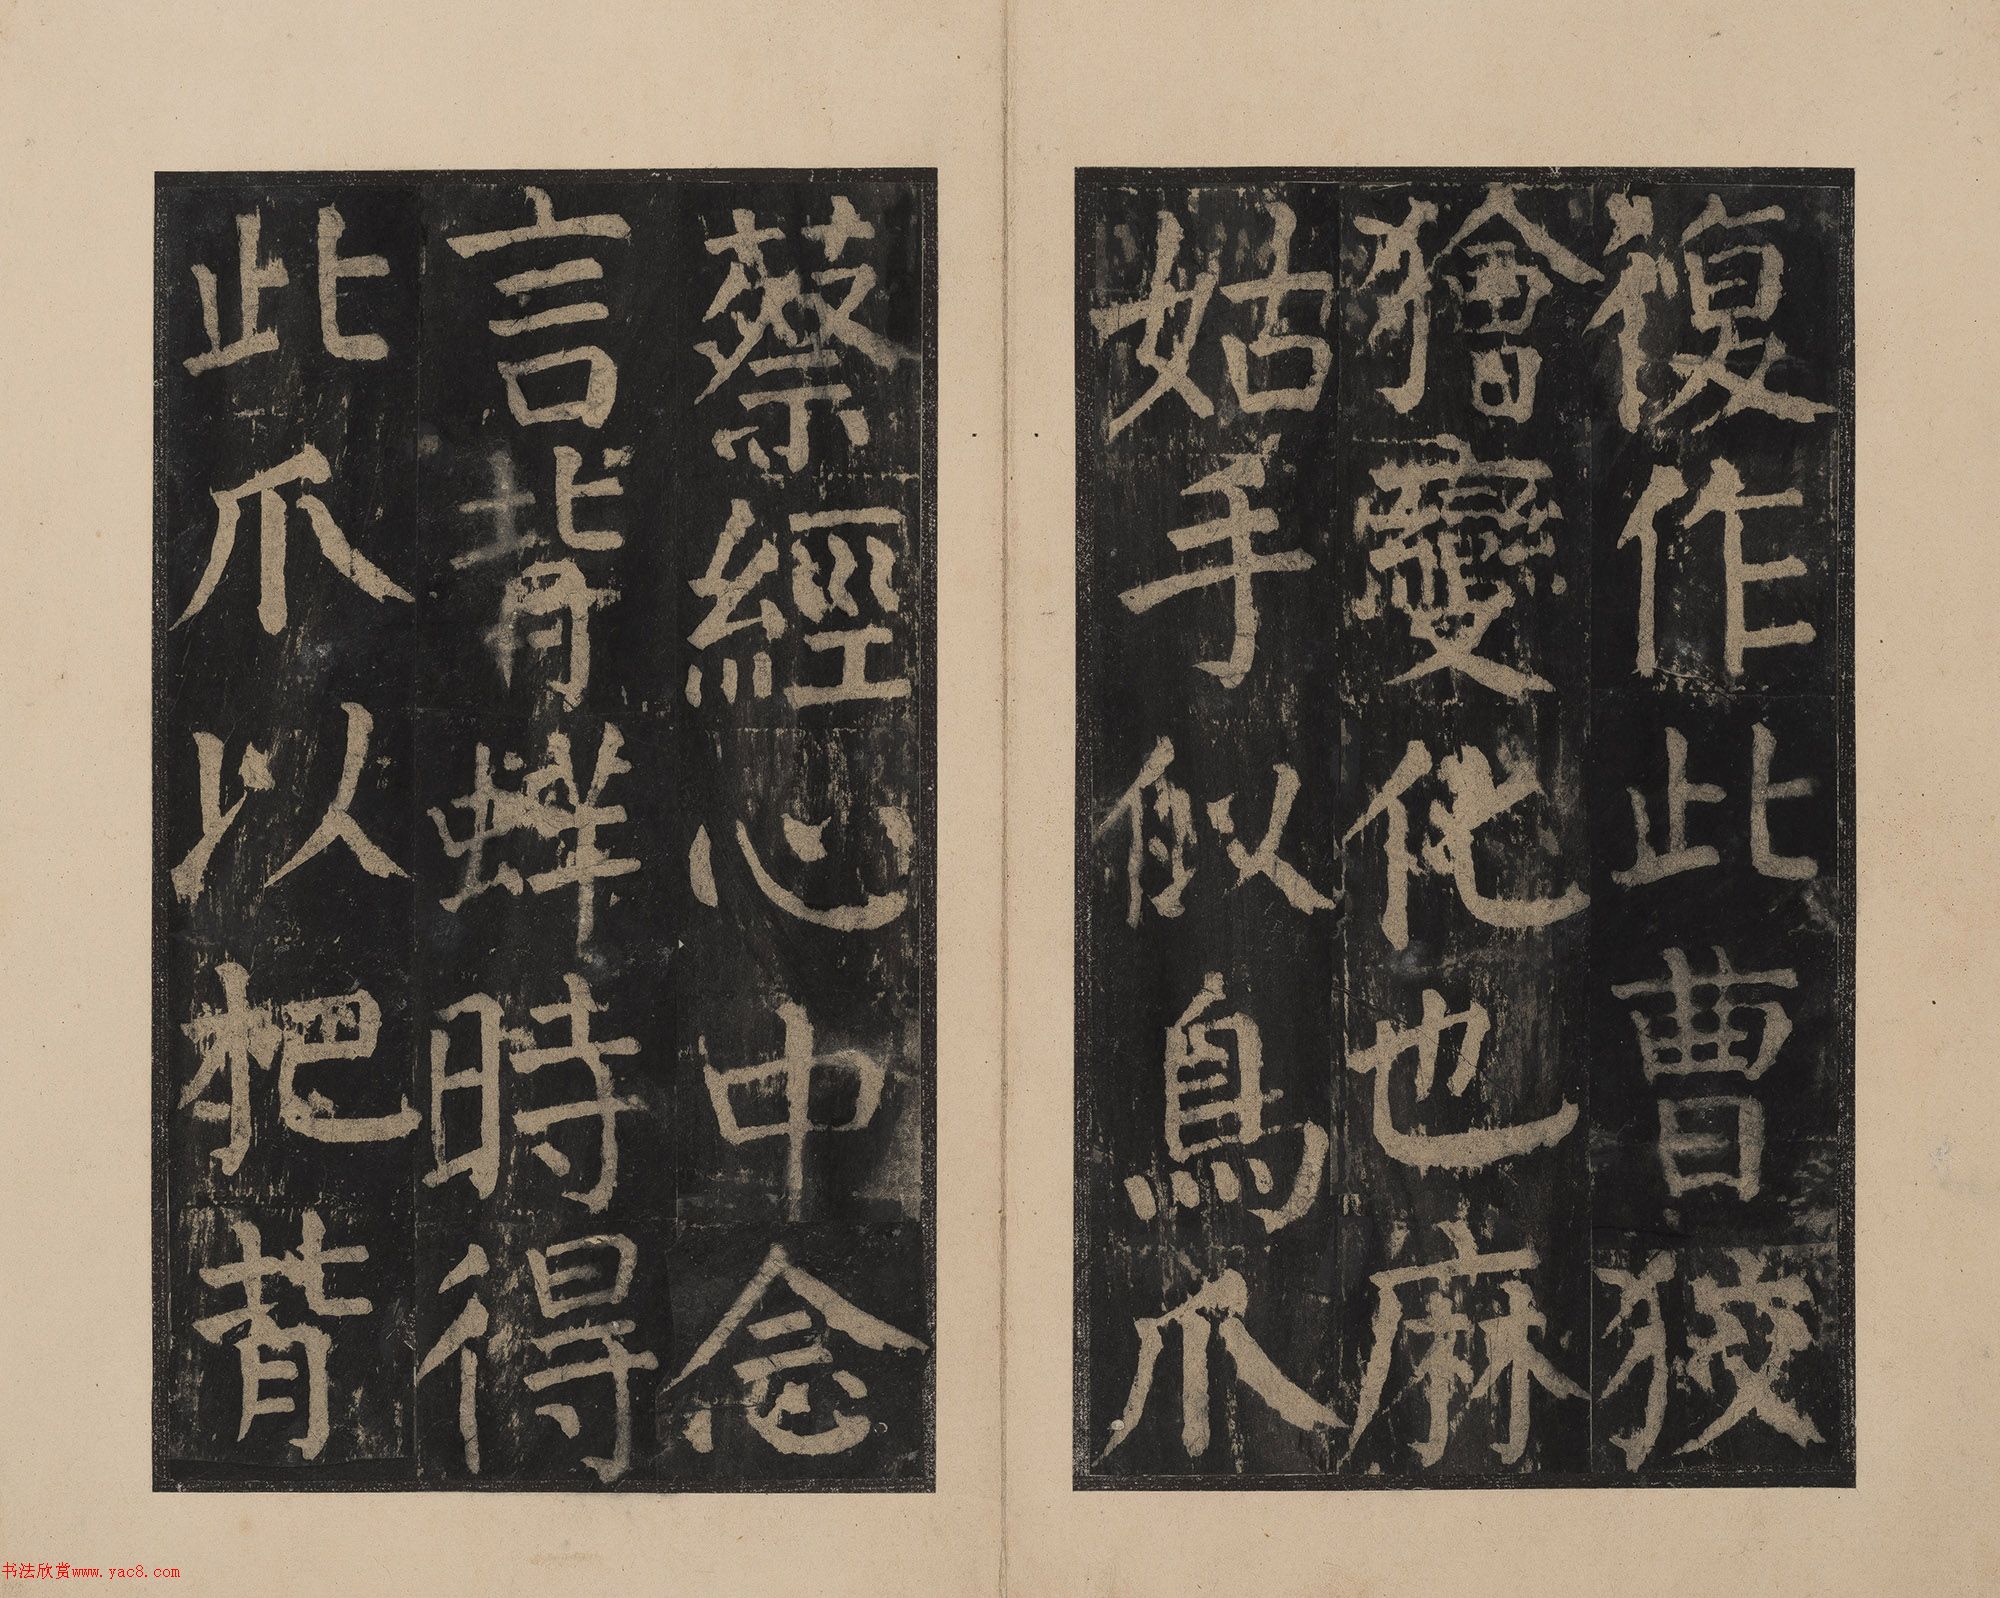 復作此曹狡
獪變化也麻
姑手似鳥爪
蔡經心中念
言背蛘時得
此爪以把背
书法欣赏www.yac8.com